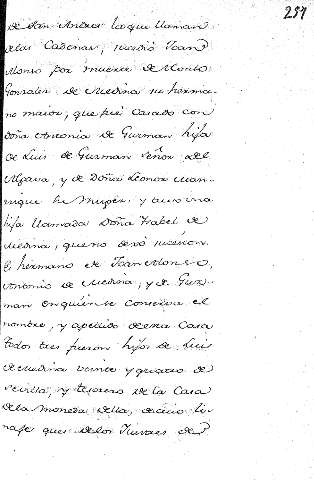 237
de San Andres la que llaman
delas Cadenas, sucedio Joan
Alonso por muerte de Alonso
Gonzales de Medina su herma-
no maior, que fué casado con
Doña Antonia de Guzman hija
de Luis de Guzman Señor del
Algava, y de Doña Leonor Man-
rique su Muger, y tuvo una
hija llamada Doña Isabel de
Medina, que no dexó sucesion.
Es hermano de Joan Alonso,
Antonio de Medina, y de Guz-
man en quien se conserva el
nombre, y apellido de esta Casa
Todos tres fueron hijos de Luis
de Medina veinte y quatro de
Sevilla, y tesorero de la Casa
de la Moneda della, de cuio li-
nage que es de los